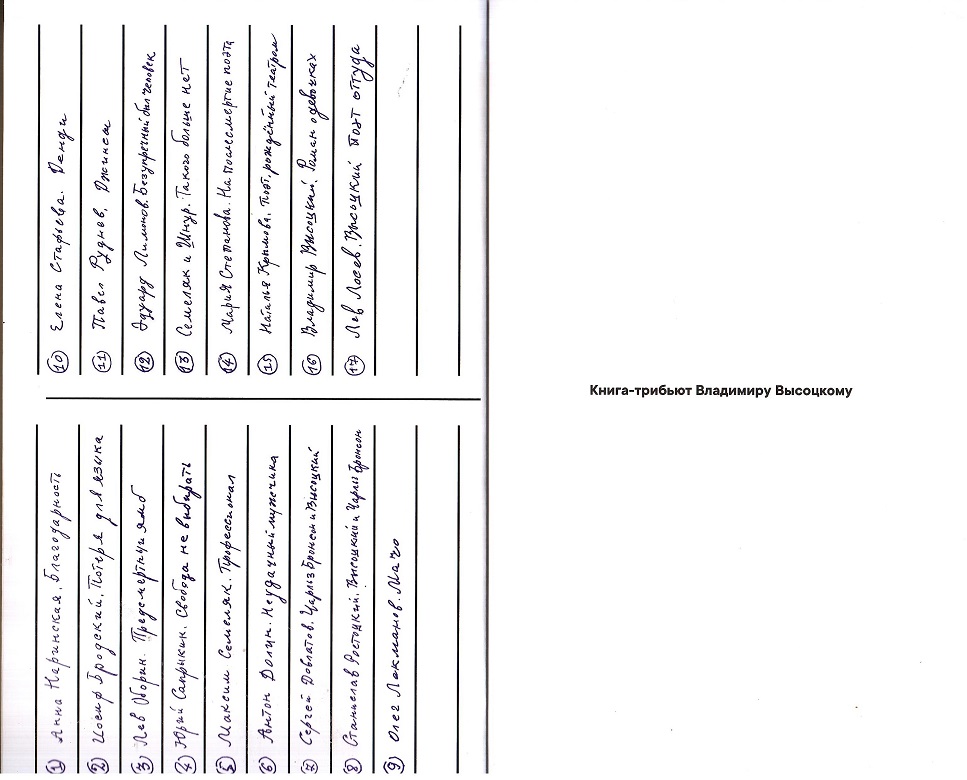 ① Анна Наринская. Благодарность
② Иосиф Бродский. Потеря для языка
③ Лев Оборин. Предсмертный ямб
④ Юрий Сапрыкин. Свобода не выбирать
⑤ Максим Семеляк. Профессионал
⑥ Антон Долин. Неудачный мужчина
⑦ Сергей Довлатов. Чарльз Бронсон и Высоцкий
⑧ Станислав Ростоцкий. Высоцкий и Чарльз Бронсон
⑨ Олег Лекманов. Мачо
⑩ Елена Стафьева. Денди
⑪ Павел Руднев. Джинсы
⑫ Эдуард Лимонов. Безупречный был человек
⑬ Семеляк и Шнур. Такого больше нет
⑭ Мария Степанова. На посмертие поэта
⑮ Наталья Крымова. Поэт, рождённый театром
⑯ Владимир Высоцкий. Роман о девочках
⑰ Лев Лосев. Высоцкий поэт оттуда
Книга-трибьют Владимиру Высоцкому